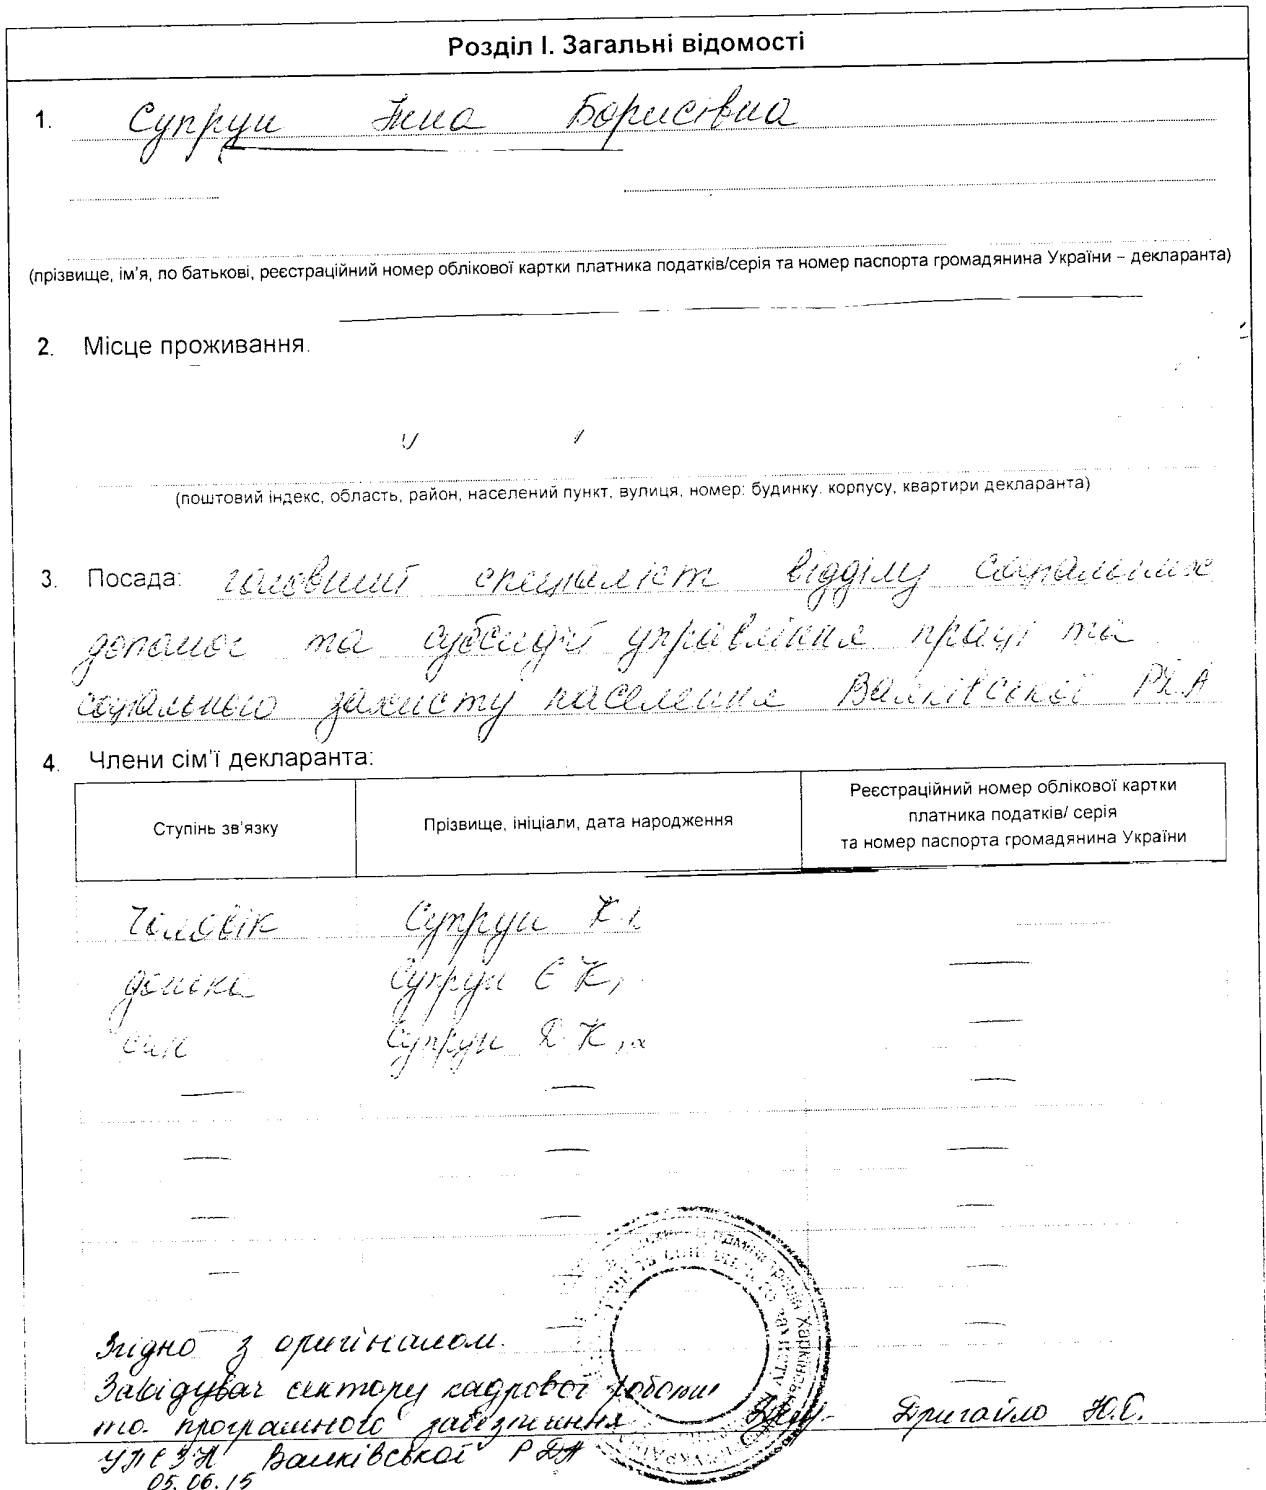 Розділ І. Загальні відомості
1. Супрун Інна Борисівна
(прізвище, ім'я, по батькові, реєстраційний номер облікової картки платника податків/серія та номер паспорта громадянина України – декларанта)
2. Місце проживання.
(поштовий індекс, область, район, населений пункт, вулиця, номер: будинку, корпусу, квартири декларанта)
3. Посада: головний спеціаліст відділу соціальних
допомог та субсидій управління праці та
соціального захисту населення Валківської РДА
4. Члени сім'ї декларанта:
Ступінь зв'язку
Прізвище, ініціали, дата народження
Реєстраційний номер облікової картки
платника податків/ серія
та номер паспорта громадянина України
Чоловік Супрун К.
донька Супрун Є К,
син Супрун Д К,
Згідно з оригіналом.
Завідувач сектору кадрової роботи
та програмного забезпечення Дригайло Ю.С.
УПСЗН Валківської РДА
05.06.15